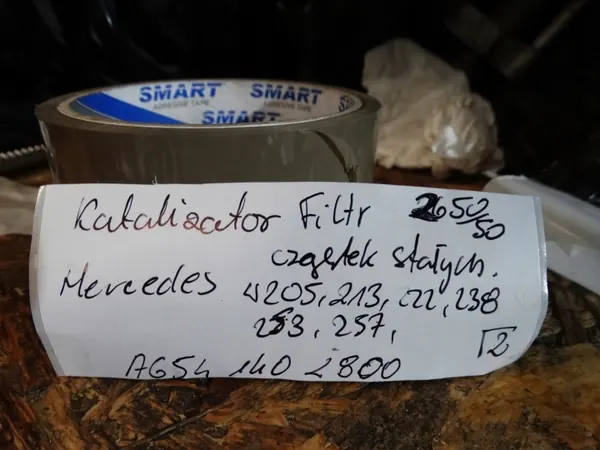 SMART SMART
ADHESIVE TAPE
SMART
Katalizator Filtr 2650/50
cząstek stałych.
Mercedes W205, 213, 222, 238
253, 257,
√2
A654 140 2800